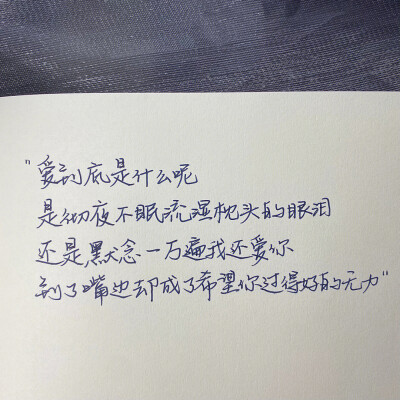 "爱到底是什么呢
是彻夜不眠流湿枕头的眼泪
还是默念一万遍我还爱你
到了嘴边却成了希望你过得好的无力"